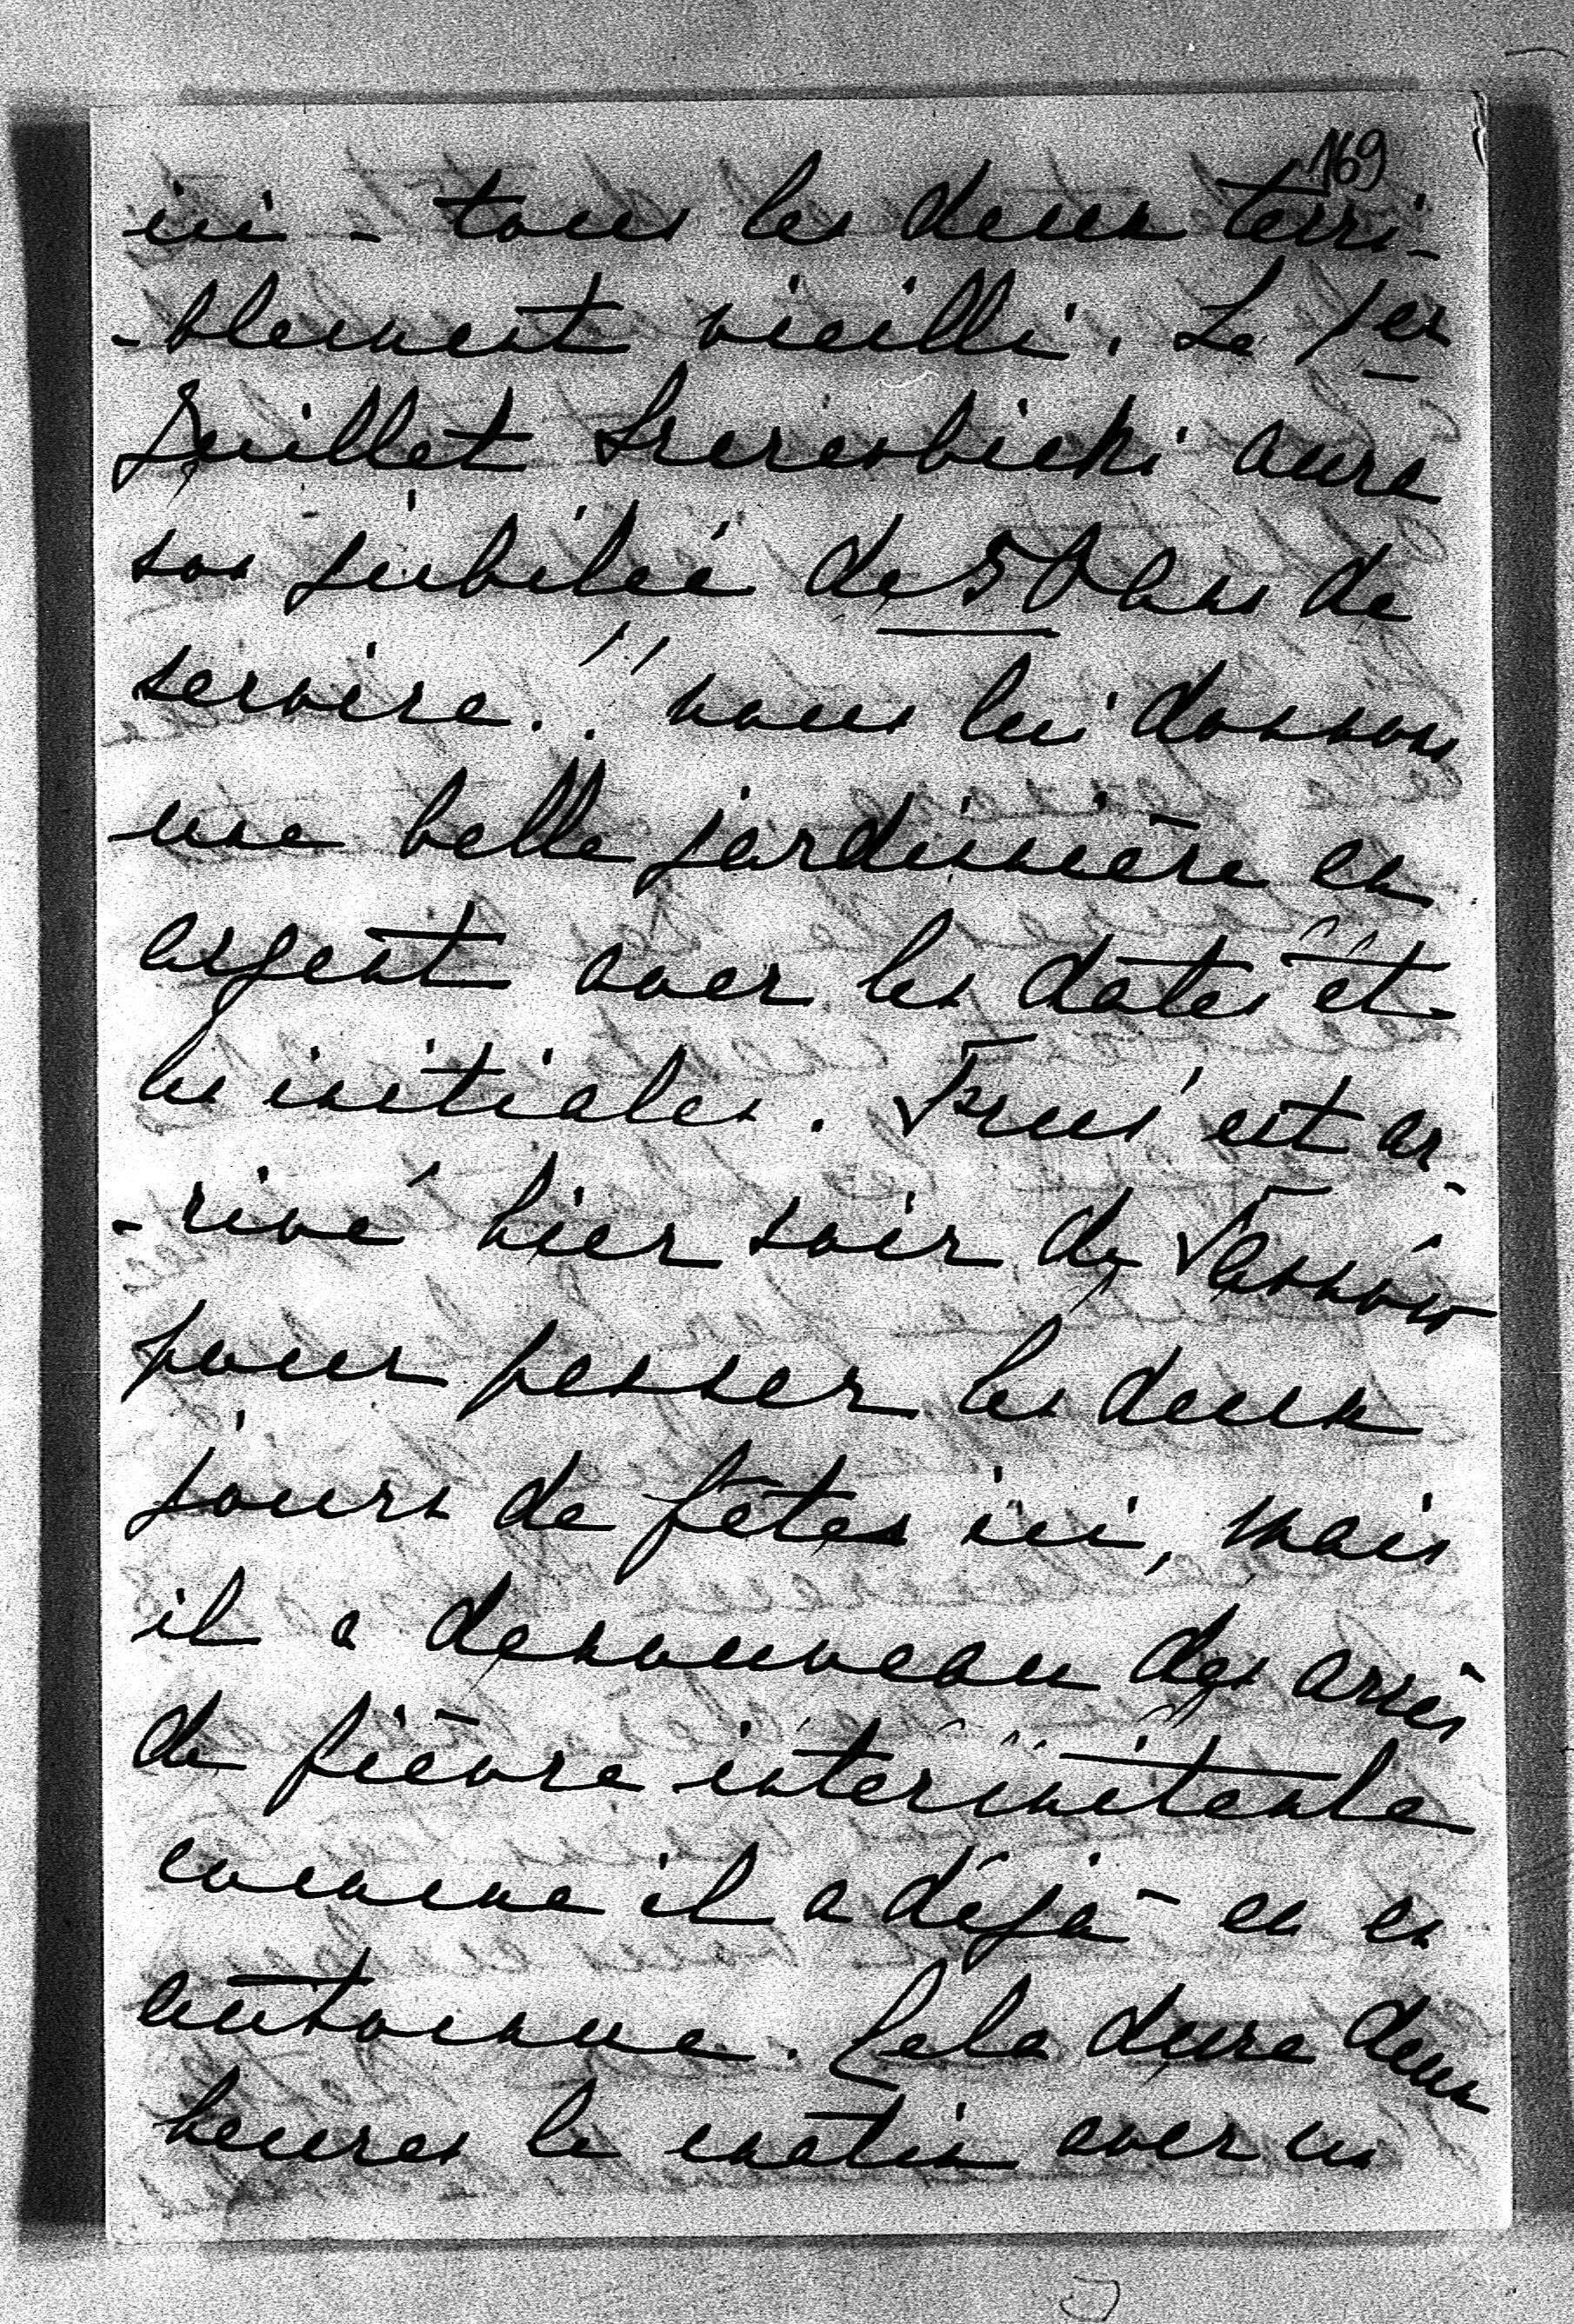 169
ici - tous les deux terri-
-blement vieilli. Le 1er
Juillet Sreresbicki aura
son jubilé de 50 ans de
service.!! nous lui donnons
une belle jardinière en
argent avec les dates et
les initiales. est ar-
-rivé hier soir de
pour passer les deux
jours de fêtes ici, mais
il a denouveau des accès
de fièvre intermitente
comme il a déjà eu en
automne. Cela dure deux
heures le matin avec un